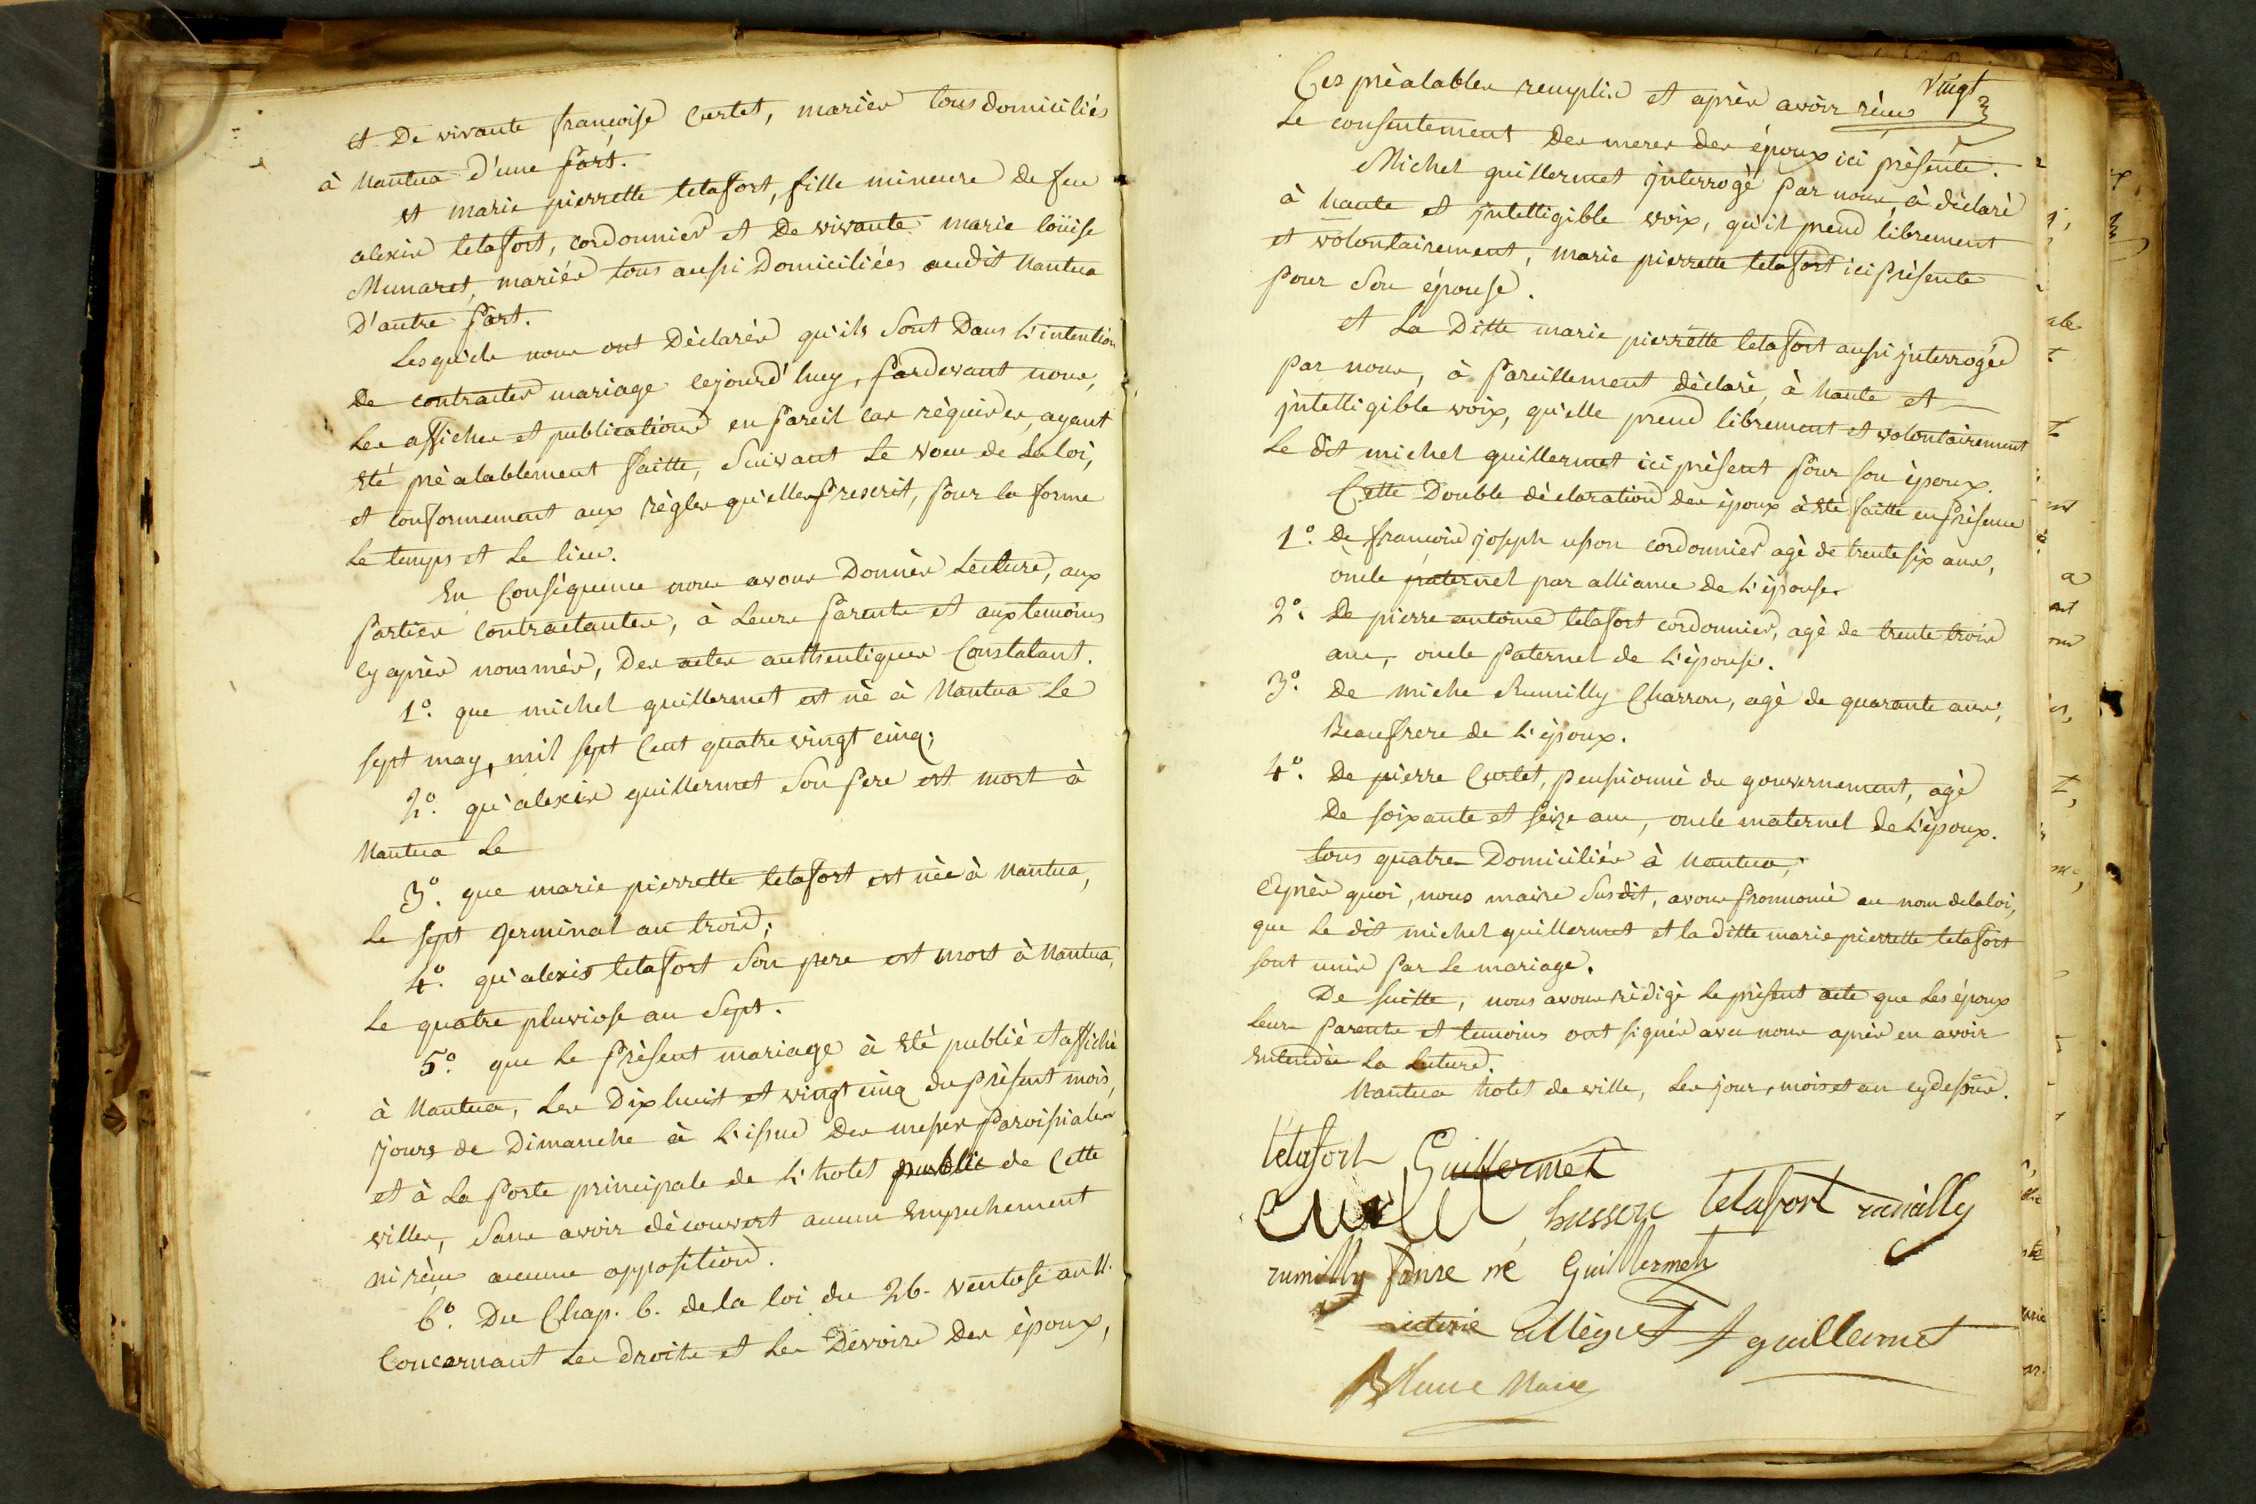 et De vivante françoise Curtet, mariés tous domiciliés
à Nantua d'une part.
et marie pierrette létafort, fille mineure de feu
alexis létafort, cordonnier et De vivante marie loüise
Munaret, mariés tous aussi Domiciliées audit Nantua
D'autre part.
Lesquels nous ont Déclarés qu'ils sont Dans L'intention
De contracter mariage cejourd'huy, pardevant nous,
Les affiches et publications en pareil cas réquises, ayant
été préalablement faitte, Suivant Le voeu de La loi,
et conformement aux régles qu'elle prescrit, pour la forme
Le temps et Le lieu.
En Conséquence nous avons Donnés Lecture, aux
parties Contractantes, à Leurs parents et aux temoins
cy après nommés, Des actes authentiques Constatant.
1.º que michel guillermet est né à Nantua Le
sept may, mil sept Cent quatre vingt cinq;
2.º qu'alexis guillermet Son pere est mort à
Nantua Le
3.º que marie pierrette létafort est née à Nantua,
Le sept germinal an trois;
4.º qu'alexis létafort Son pere est mort à Nantua,
Le quatre pluviose an Sept.
5.º que Le présent mariage à été publié et affiché
à Nantua, Les Dix huit et vingt cinq du présent mois,
jours de Dimanche à L'issue Des messes paroissiales
et à La porte principale de L'hotel public de Cette
ville, Sans avoir découvert aucun Empechement
ni réçus aucune opposition.
6.º Du Chap. 6. de la loi du 26. ventose an 11.
Concernant Les droits et Les Devoirs Des époux,
Vingt
Ces préalables remplis et après avoir réçus
Le consentement Des meres des époux ici présente.
Michel guillermet interrogé par nous, à déclaré
à haute et intelligible voix, qu'il prend librement
et volontairement, marie pierrette létafort ici présente
pour Son épouse.
et La Ditte marie pierrette létafort aussi interrogée
par nous, à pareillement déclaré, à haute et
intelligible voix, qu'elle prend librement et volontairement
Le dit michel guillermet ici présent pour son époux.
Cette Double déclaration des époux à été faitte en présence
1.º De françois joseph usson cordonnier agé de trente six ans,
oncle paternel par alliance de L'épouse.
2.º De pierre antoine létafort cordonnier, agé de trente trois
ans, oncle paternel de L'épouse.
3.º De miche Rumilly Charron, agé de quarante ans,
Beaufrere de L'époux.
4.º De pierre Curtet, pensionné du gouvernement, agé
De soixante et seize ans, oncle maternel de L'époux.
tous quatre Domiciliés à Nantua;
Après quoi, nous maire Susdit, avons prononcé au nom de la loi,
que Le dit michel guillermet et la ditte marie pierrette létafort
sont unis par Le mariage.
De suitte, nous avons rédigé Le présent acte que Les époux
Leurs parents et temoins ont signés avec nous après en avoir
Entendûe La Lecture.
Nantua hotel de ville, Les jour, mois et an cy dessus.
létafort Guillermet
Curtet husson létafort rumilly
rumilly fanse né Guillermet
allégret guillermet
Maire